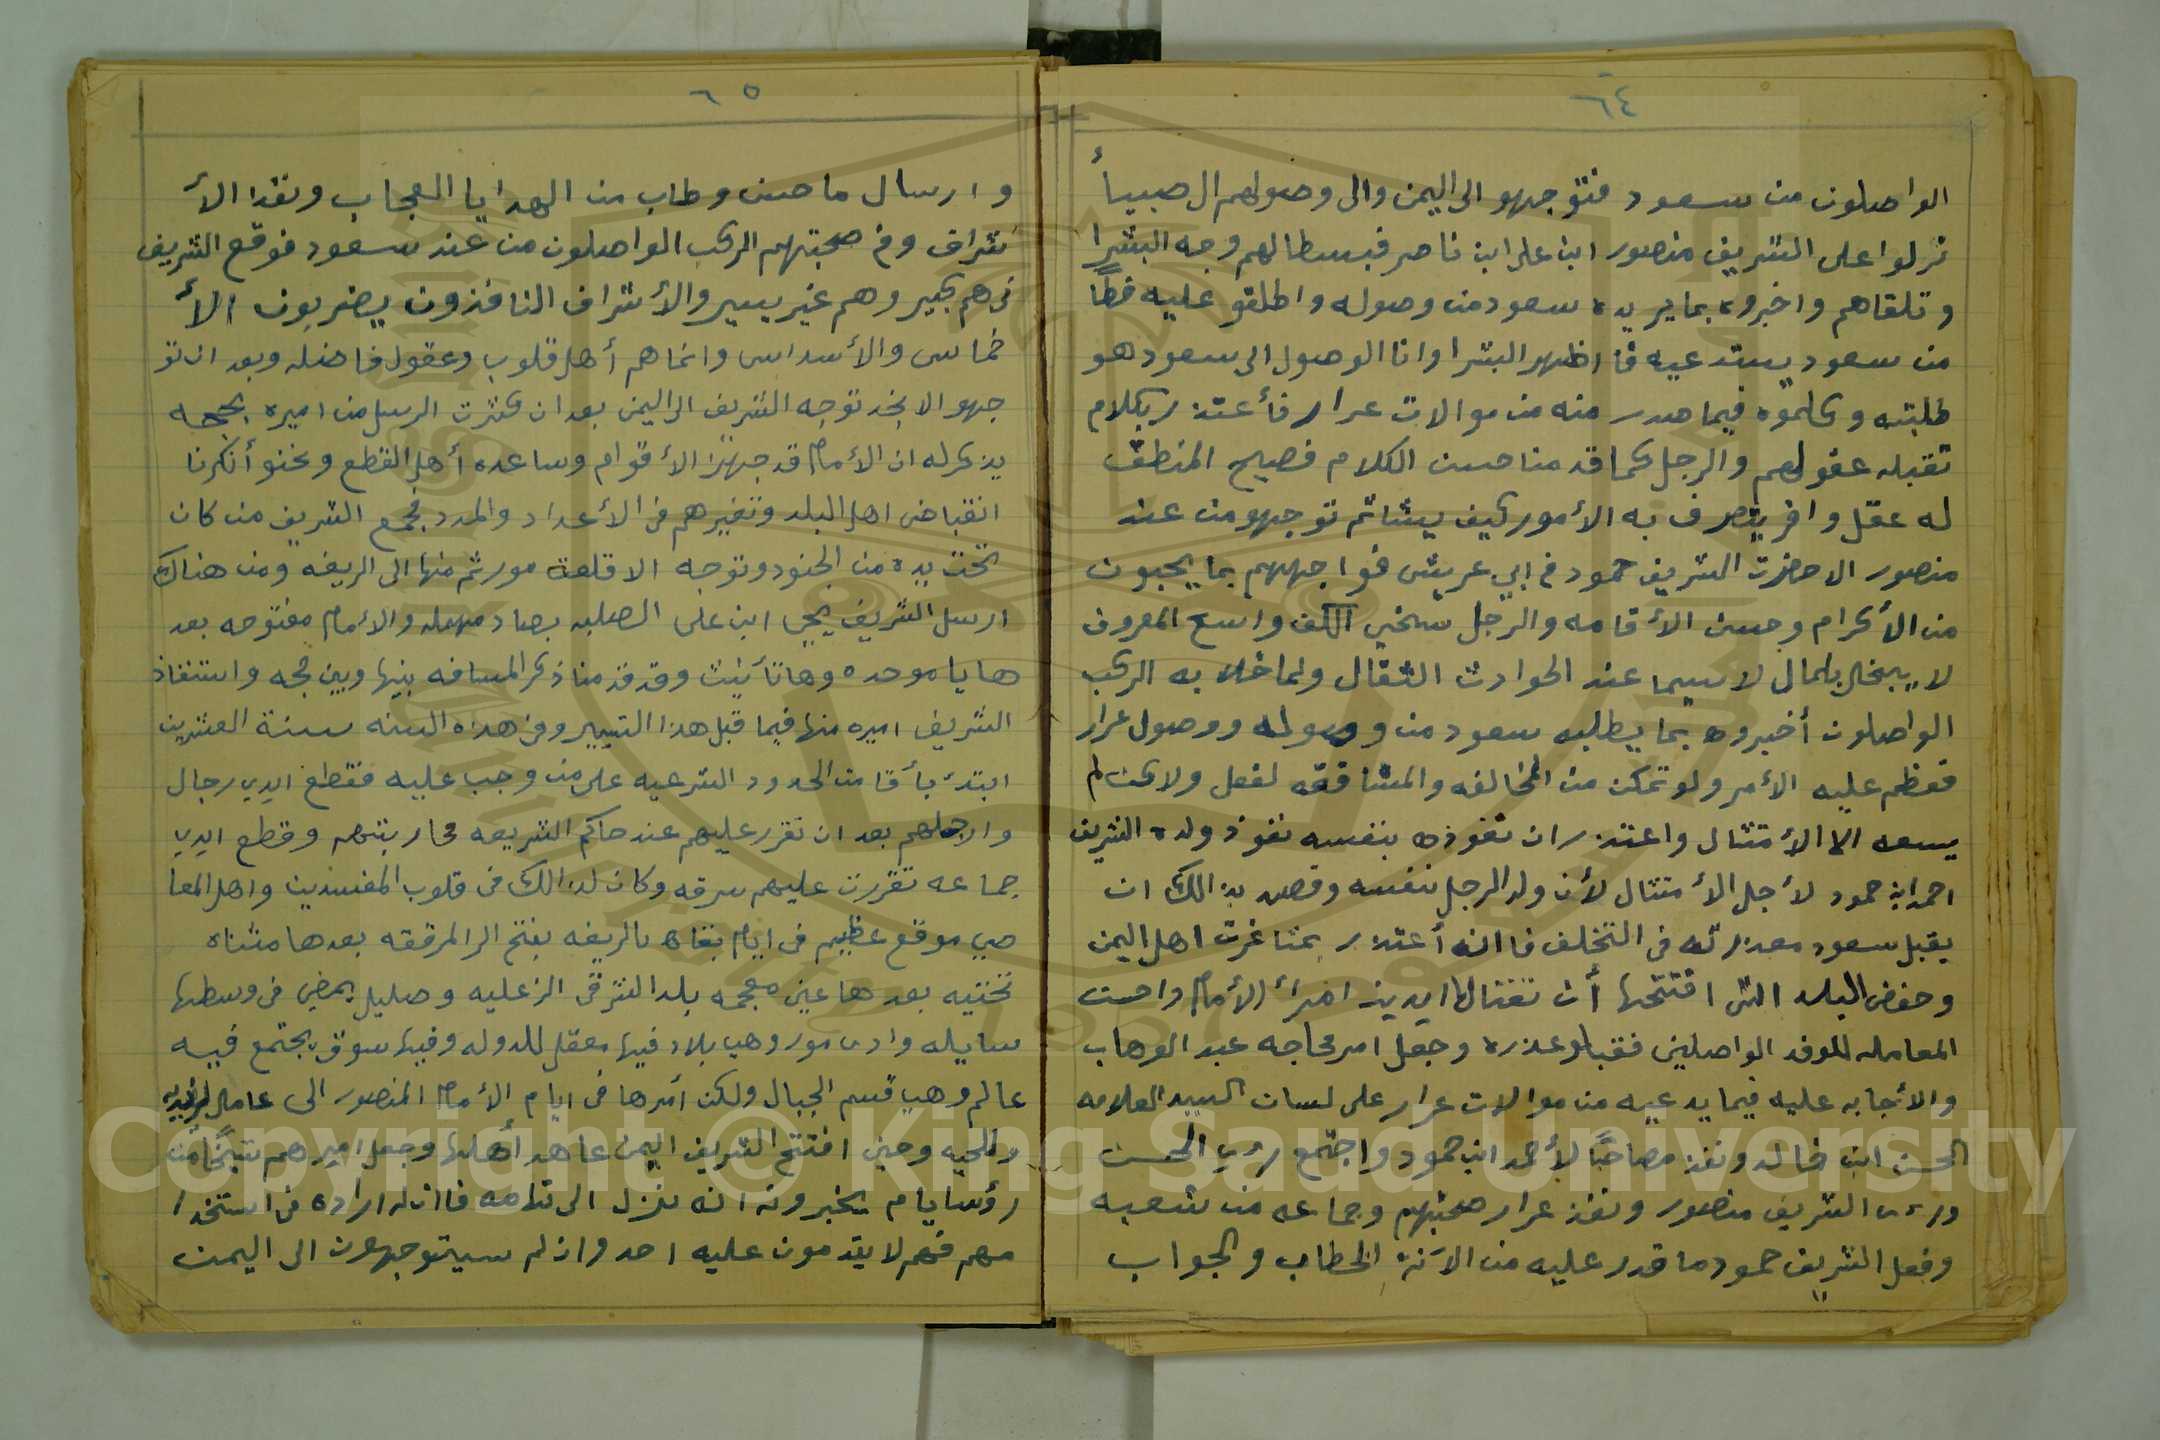 ٦٤
الواصلون من سعود فتوجهو الى اليمن والى وصولهم ال صبيأ
نزلوا على الشريف منصور ابن على ابن ناصر فبسطا لهم وجه البشرا
وتلقاهم واخبروه بما يريده سعود من وصوله واطلقو عليه خطاً
من سعود يستدعيه فا اظهر البشرا وانا الوصول الى سعود هو
طلبته وكلموه فيما صدر منه من موالات عرار فأعتذر بكلام
تقبله عقولهم والرجل كما قد منا حسن الكلام فصيح المنطق
له عقل وافر يتصرف به الأمور كيف يشا ثم توجهو من عند
منصور الا حضرت الشريف حمود في ابي عريش فواجههم بما يحبون
من الأكرام وحسن الأقامه والرجل سخي الكف واسع المعروف
لا يبخل بلمال لاسيما عند الحوادث الثقال ولما خلا به الركب
الواصلون أخبروه بما يطلبه سعود من ووصوله ووصول عرار
فعظم عليه الأمر ولو تمكن من المخالفه والمشاققه لفعل ولاكن لم
يسعه الا الأمتثال واعتذر ان نفوذه بنفسه نفوذ ولده الشريف
احمد ابن حمود لأجل الأمتثال لأن ولد الرجل نفسه وقصد بذالك ان
يقبل سعود معذرته في التخلف فا انه أعتذر بمثاغرت اهل اليمن
وحفض البلد التى افتتحها أن تغتالها ايدين امرأ الأمام واحسن
المعامله للوفد الواصلين فقبلو عذره وجعل امر محاجه عبد الوهاب
والأجابه عليه فيما يدعيه من موالات عرار على لسان السيد العلامه
الحسن ابن خالد ونفذ مصاحبًا لأحمد ابن حمود واجتمع رءي الحسن
ورءى الشريف منصور ونفذ عرار صحبتهم وجماعه من شعبه
وفعل الشريف حمود ما قدر عليه من الآنة الخطاب والجواب
٦٥
وارسال ما حسن وطاب من الهدايا العجاب ونفذ الأ
شراف وفي صحبتهم الركب الواصلون من عند سعود فوقع الشريف
في هم كبير وهم غير يسير والأشراف النافذون يضربون الأ
خماس والأسداس وانما هم أهل قلوب وعقول فاضله وبعد ان تو
جهو الا نجد توجه الشريف الى اليمن بعد ان كثرت الرسل من اميره بججه
يذكر له ان الأمام قد جهز الأقوام وساعده أهل القطع ونحنو أنكرنا
انقباض اهل البلد وتغيرهم في الأعداد والمدد فجمع الشريف من كان
تحت يده من الجنود وتوجه الا قلعة مور ثم منها الى الريغه ومن هناك
ارسل الشريف يحيى ابن على الصلبه بصاد مهمله والأمام مفتوحه بعد
ها يا موحده وها تأنيث وقد قدمنا ذكر المسافه بينها وبين حجه واستنقاذ
الشريف اميره منها فيما قبل هذا التيبير وفي هذه السنه سنة العشرين
ابتدئ بأقامت الحدود الشرعيه على من وجب عليه فقطع ايدي رجال
وارجلهم بعد ان تقرر عليهم عند حاكم الشريعه محاربتهم وقطع ايدي
جماعه تقررت عليهم سرقه وكان لذالك في قلوب المفسدين واهل المعا
صي موقع عظيم في ايام بقاه بالريغه بفتح الرا المرققه بعدها مثناه
تحتيه بعدها غين معجمه بلد الشرقى الزعليه وصليل يمضي في وسطها
سايله وادى مور وهي بلاد فيها معقل للدوله وفيها سوق يجتمع فيه
عالم وهي قسم الجبال ولكن أمرها في ايام الأمام المنصور الى عامل
والحيه وحين افتتح الشريف اليمن عاهد أهلها وجعل اميرهم شيخًا من
رؤسا يام يخبرونه انه نزل الى تهامه فا ان له اراده في استخدا
مهم فهم لا يقدمون عليه احد وان لم سيتوجهون الى اليمن
Copyright © King Saud University